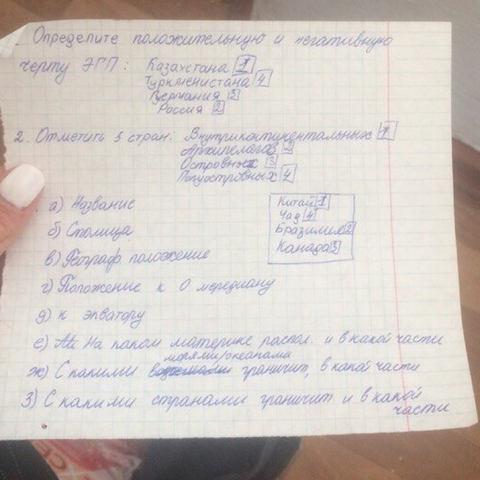 Определите положительную и негативную
черту ЭГП: Казахстана 1
Туркменистана 4
Германия 3
Россия 2
2. Отметить 5 стран: Внутриконтинентальных 1
Архипелагов 2
Островных 3
Полуостровных 4
а) Название
б) Столица
в) Географ положение
г) Положение к 0 меридиану
д) к экватору
е) На каком материке распол. и в какой части
ж) С какими морями/океанами граничит, в какой части
З) С какими странами граничит и в какой
части
Китай 1
Чад 4
Бразилия 2
Канада 3